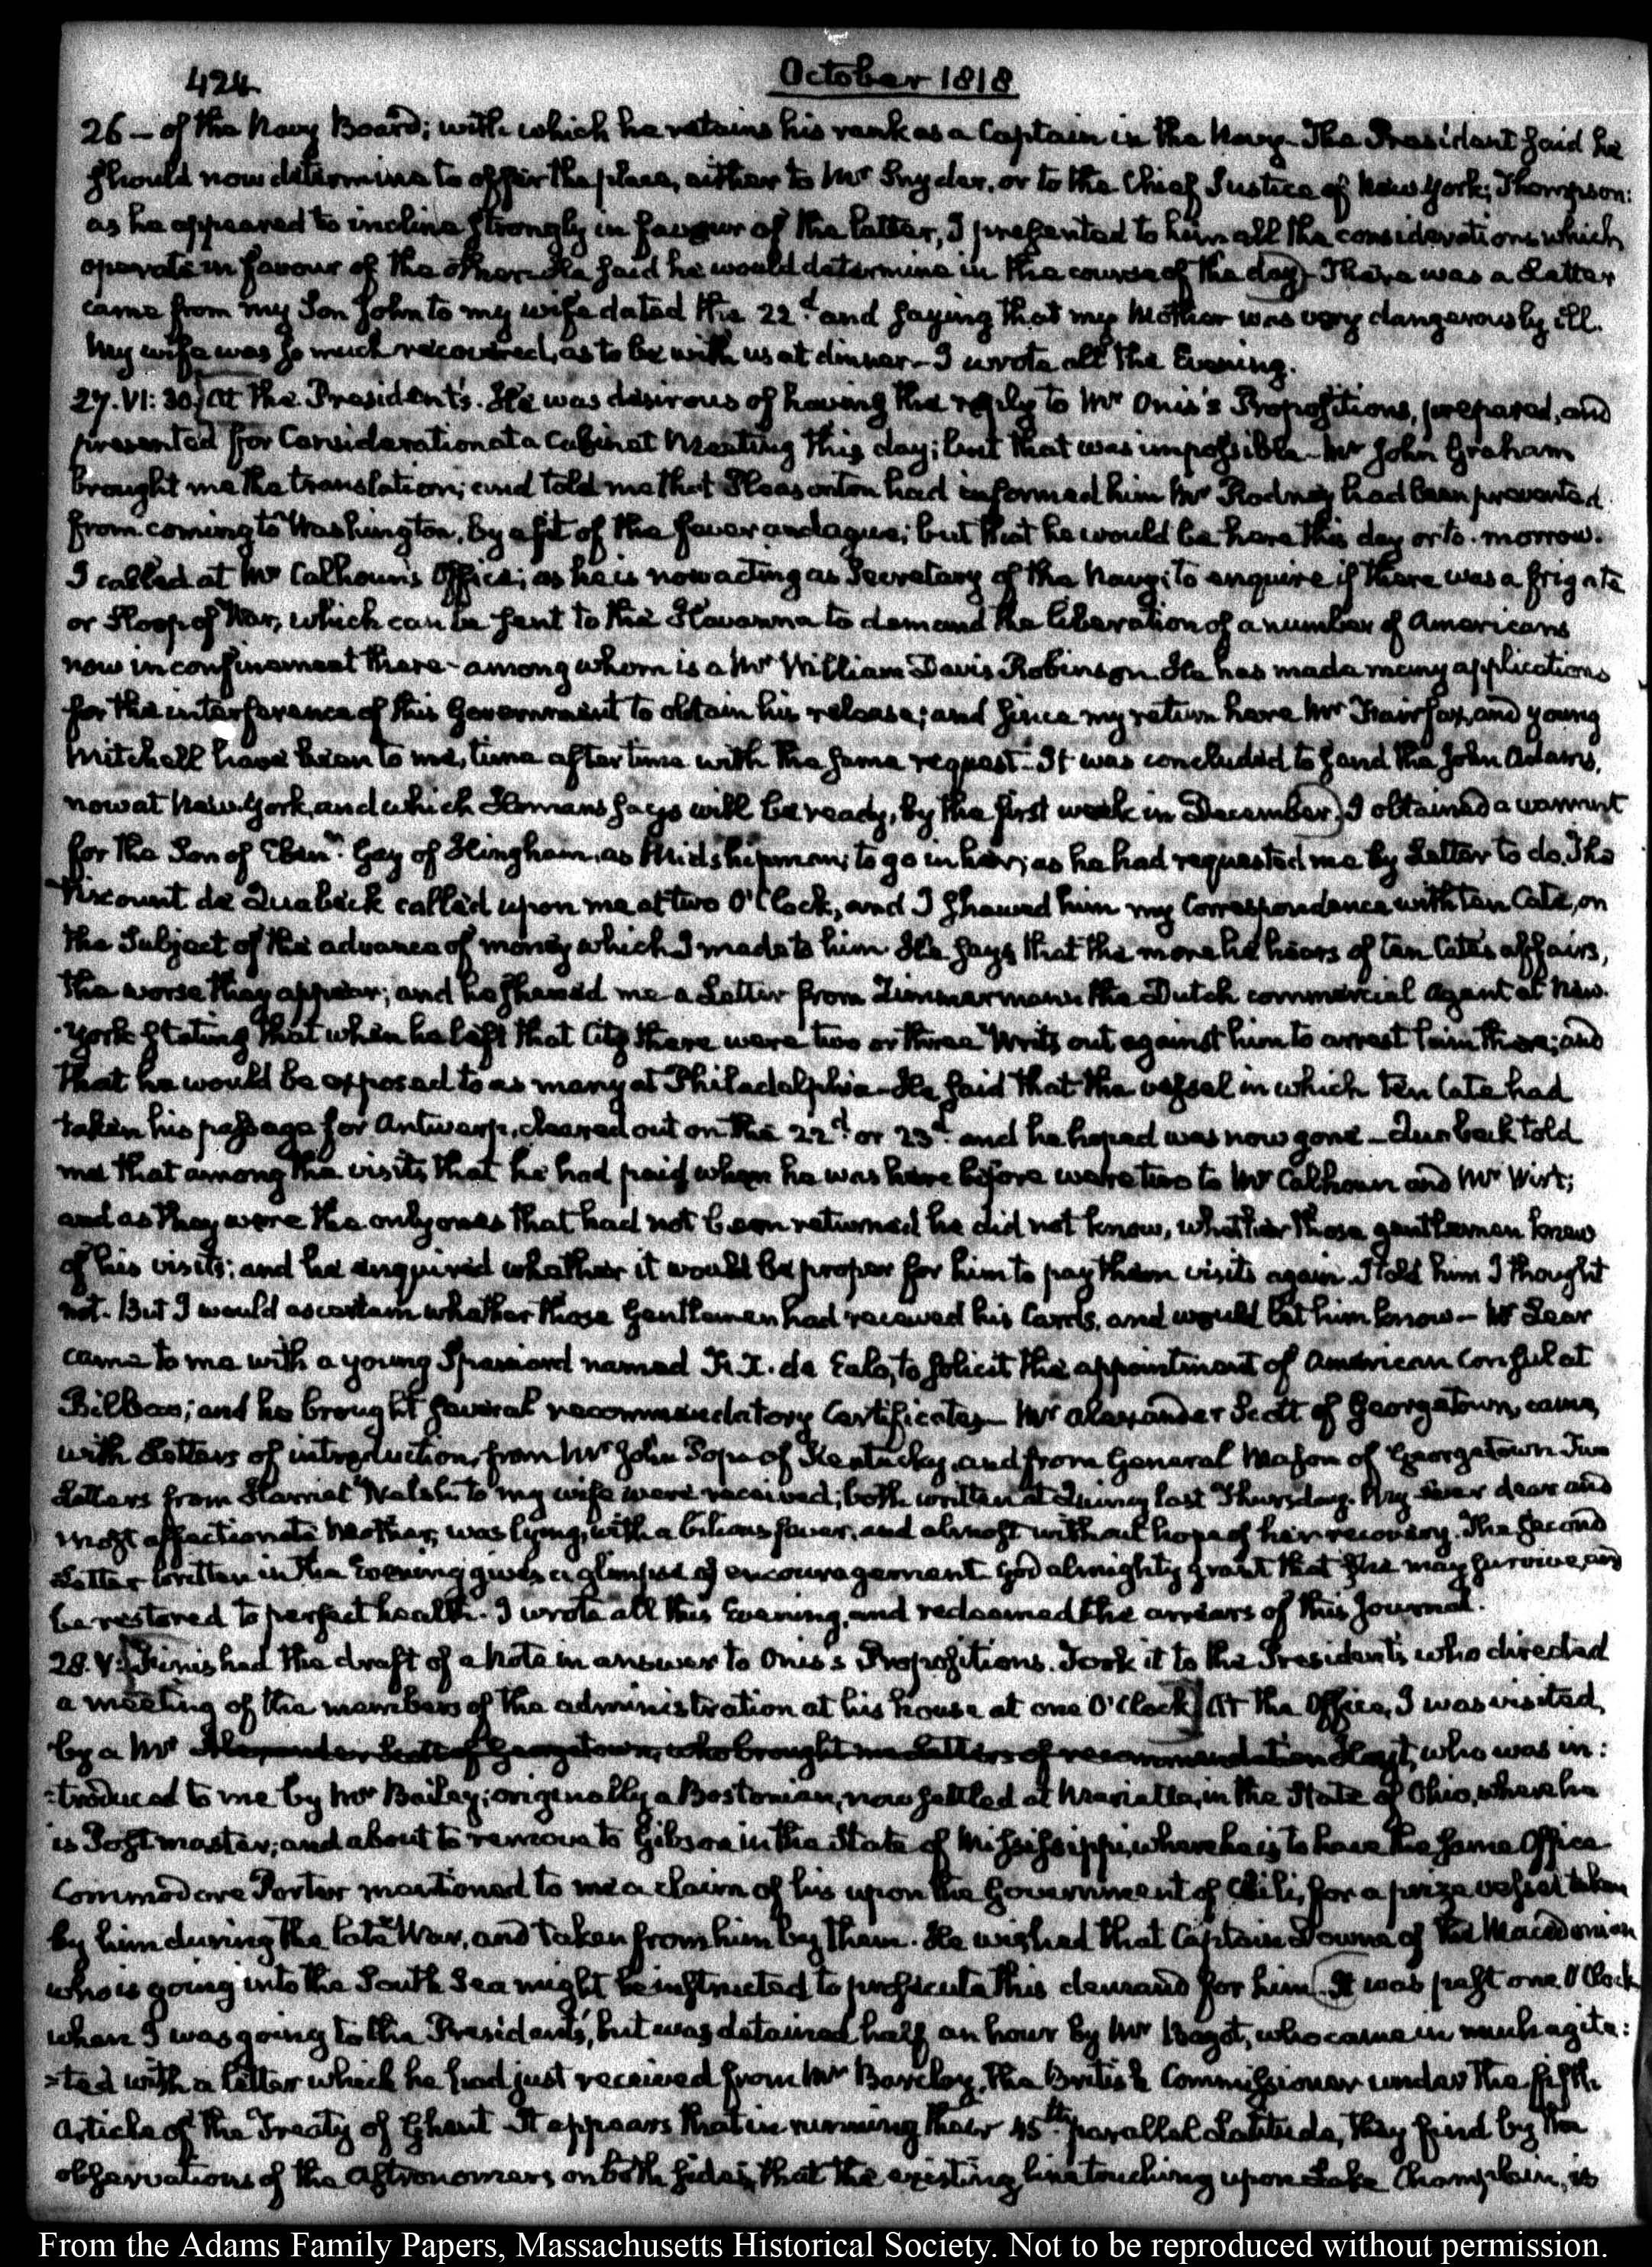 424
October 1818
26 – of the Navy Board; with which he retains his rank as a Captain in the Navy – The President said he
should now determine to offer the place, either to Mr Snyder, or to the Chief Justice of New York; Thompson:
as he appeared to incline strongly in favour of the latter, I presented to him all the considerations which
operate in favour of the other – He said he would determine in the course of the day) There was a Letter
came from my Son John to my wife dated the 22d and saying that my Mother was very dangerously ill.
My wife was so much recovered, as to be with us at dinner – I wrote all the Evening.
27. VI: 30. At the President's. He was desirous of having the reply to Mr Onis's Propositions, prepared, and
presented for Consideration at a Cabinet Meeting this day; but that was impossible – Mr John Graham
brought me the translation; and told me that Pleasonton had informed him Mr Rodney had been prevented
from coming to Washington, by a fit of the fever and ague; but that he would be here this day or to-morrow.
I called at Mr Calhoun's Office; as he is now acting as Secretary of the Navy; to enquire if there was a frigate
or Sloop of War, which can be sent to the Havanna to demand the liberation of a number of Americans
now in confinement there – among whom is a Mr William Davis Robinson. He has made many applications
for the interference of this Government to obtain his release; and since my return here Mr Fairfax, and young
Mitchell have been to me, time after time with the same request – It was concluded to send the John Adams,
now at New York, and which Homans says will be ready, by the first week in December.) I obtained a warrant
for the Son of Ebenr. Gay of Hingham, as Midshipman; to go in her; as he had requested me by Letter to do. The
Viscount de Quabeck called upon me at two O'Clock, and I shewed him my Correspondence with ten Cate, on
the Subject of the advance of money which I made to him. He says that the more he hears of ten Cate's affairs,
the worse they appear; and he shewed me a Letter from Zimmermann the Dutch commercial Agent at New-
York stating that when he left that City there were two or three Writs out against him to arrest him there; and
that he would be exposed to as many at Philadelphia – He said that the vessel in which ten Cate had
taken his passage for Antwerp, cleared out on the 22d. or 23d. and he hoped was now gone – Quabeck told
me that among the visits that he had paid when he was here before were two to Mr Calhoun and Mr Wirt;
and as they were the only ones that had not been returned he did not know, whether those gentlemen knew
of his visits; and he enquired whether it would be proper for him to pay them visits again. I told him I thought
not. But I would ascertain whether those Gentlemen had received his Cards, and would let him know – Mr Lear
came to me with a young Spaniard named de Ealo, to solicit the appointment of American Consul at
Bilbao; and he brought several recommendatory Certificates – Mr Alexander Scott of Georgetown, came,
with Letters of introduction, from Mr John Pope of Kentucky, and from General Mason of Georgetown Two
Letters from Harriet Welsh to my wife were received; both written at Quincy last Thursday. My ever dear and
most affectionate Mother, was lying, with a bilious fever, and almost without hope of her recovery. The second
Letter written in the Evening gives a glimpse of encouragement God almighty grant that she may survive, and
be restored to perfect health. I wrote all this Evening, and redeemed the arrears of this Journal.
28. V: Finished the draft of a Note in answer to Onis's Propositions. Took it to the President's who directed
a meeting of the members of the administration at his house at one O'Clock] At the Office, I was visited
by a Mr Alexander Scott of Georgetown, who brought me Letters of recommendation who was in:
:troduced to me by Mr Bailey; originally a Bostonian, now settled at Marietta, in the State of Ohio, where he
is Postmaster; and about to remove to Gibson in the State of Mississippi, where he is to have the same Office
Commodore Porter mentioned to me a claim of his upon the Government of Chili, for a prize vessel taken
by him during the late War, and taken from him by them. He wished that Captain Downs of the Macedonian
who is going into the South Sea might be instructed to prosecute this demand for him (It was past one O'Clock
when I was going to the President's, but was detained half an hour by Mr Bagot, who came in much agita:
:ted with a letter which he had just received from Mr Barclay, the British Commissioner under the fifth
Article of the Treaty of Ghent – It appears that in running their 45th. parallel Latitude, they find by the
observations of the Astronomers on both sides, that the existing line touching upon Lake Champlain, is
From the Adams Family Papers, Massachusetts Historical Society. Not to be reproduced without permission.